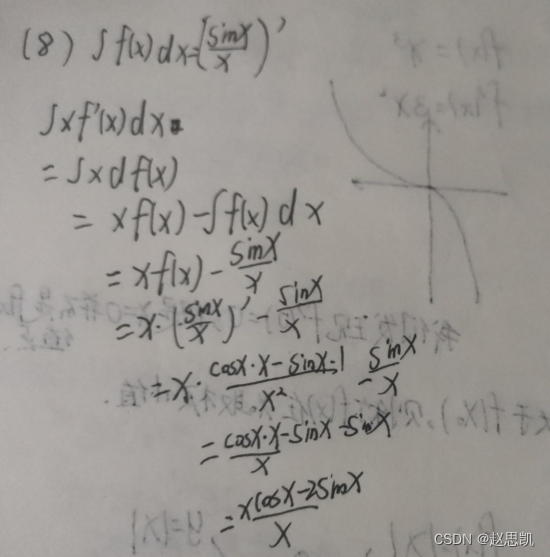 (8) ∫f(x)dx=(sinx/x)′
∫xf′(x)dx
=∫xdf(x)
=xf(x)-∫f(x)dx
=xf(x)-sinx/x
=x·(sinx/x)′-sinx/x
=x·(cosx·x-sinx·1)/x²-sinx/x
=(cosx·x-sinx-sinx)/x
=(xcosx-2sinx)/x
CSDN @赵思凯